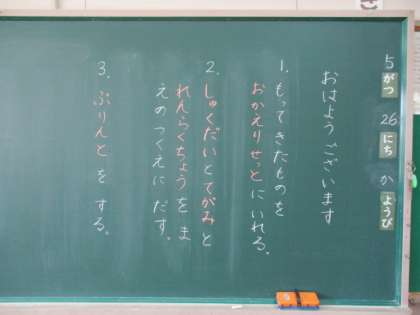 5がつ 26にち かようび
おはようございます
1. もってきたものを
おかえりせっとにいれる。
2. しゅくだいとてがみと
れんらくちょうをま
えのつくえにだす。
3. ぷりんとをする。